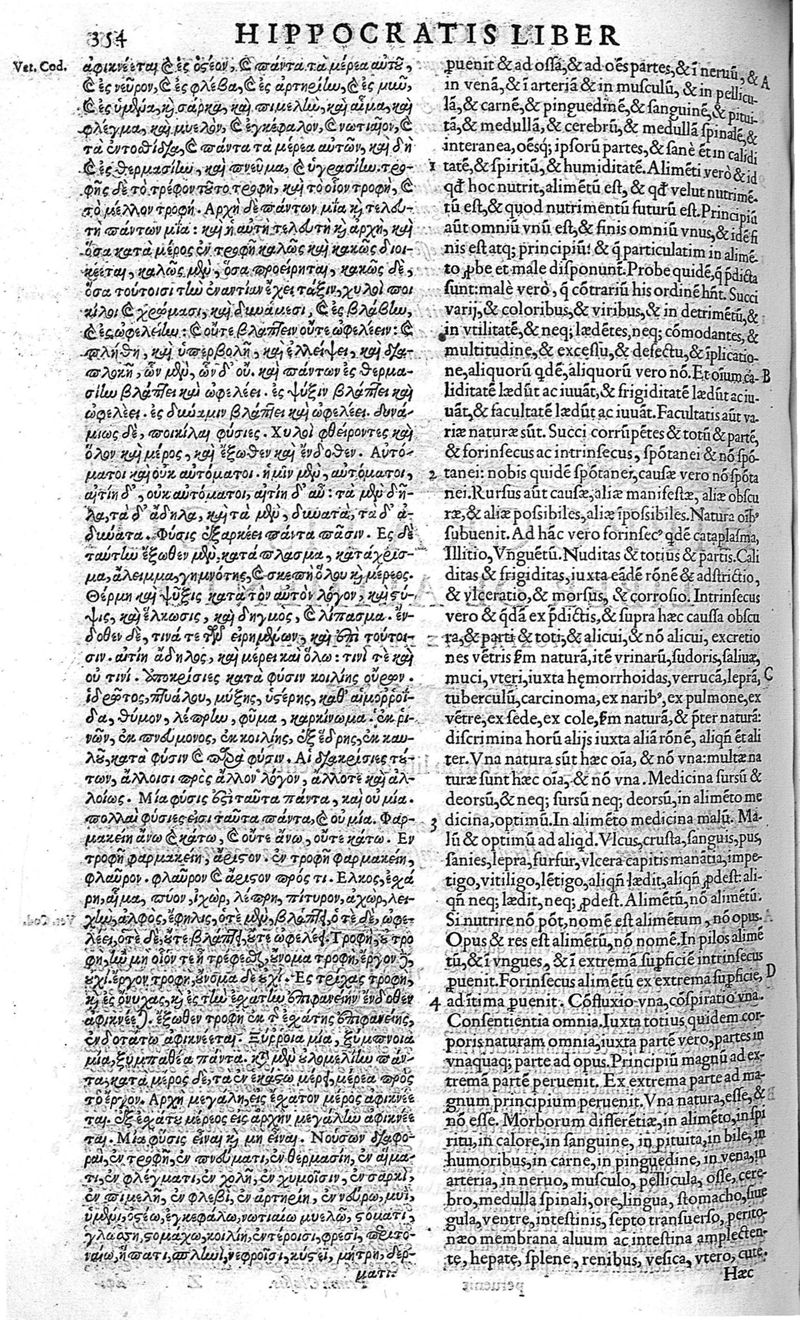 354 HIPPOCRATIS LIBER
Vet. Cod.
ἀφικνέεται καὶ ἐς ὀστέον, καὶ πάντα τὰ μέρεα αὐτοῦ,
καὶ ἐς νεῦρον, καὶ ἐς φλέβα, καὶ ἐς ἀρτηρίην, καὶ ἐς μῦν,
καὶ ἐς ὑμένα, καὶ σάρκα, καὶ πιμελὴν, καὶ αἷμα, καὶ
φλέγμα, καὶ μυελὸν, καὶ ἐγκέφαλον, καὶ νωτιαῖον, καὶ
τὰ ἐντοσθίδια, καὶ πάντα τὰ μέρεα αὐτῶν, καὶ δὴ
καὶ ἐς θερμασίην, καὶ πνεῦμα, καὶ ὑγρασίην. τρο-
φῆς δὲ τὸ τρέφον τοῦτο τροφὴ, καὶ τὸ οἷον τροφὴ, καὶ
τὸ μέλλον τροφή. Ἀρχὴ δὲ πάντων μία καὶ τελευ-
τὴ πάντων μία: καὶ ἡ αὐτὴ τελευτὴ καὶ ἀρχὴ, καὶ
ὅσα κατὰ μέρος ἐν τροφῇ καλῶς καὶ κακῶς διοι-
κέεται, καλῶς μὲν, ὅσα προείρηται, κακῶς δὲ,
ὅσα τούτοισι τὴν ἐναντίαν ἔχει τάξιν, χυλοὶ ποι
κίλοι καὶ χρώμασι, καὶ δυνάμεσι, καὶ ἐς βλάβην,
καὶ ἐς ὠφελείην: καὶ οὔτε βλάπτειν οὔτε ὠφελέειν: καὶ
πλήθη, καὶ ὑπερβολῇ, καὶ ἐλλείψει, καὶ δια-
πλοκῇ, ὧν μὲν, ὧν δ' οὔ. καὶ πάντων ἐς θερμα-
σίην βλάπτει καὶ ὠφελέει. ἐς ψύξιν βλάπτει καὶ
ὠφελέει. ἐς δύναμιν βλάπτει καὶ ὠφελέει. δυνά-
μιως δὲ, ποικίλαι φύσιες. Χυλοὶ φθείροντες καὶ
ὅλον καὶ μέρος, καὶ ἔξωθεν καὶ ἔνδοθεν. Αὐτό-
ματοι καὶ οὐκ αὐτόματοι. ἡμῖν μὲν, αὐτόματοι,
αἰτίῃ δ', οὐκ αὐτόματοι, αἰτίῃ δ' αὖ: τὰ μὲν δῆ-
λα, τὰ δ' ἄδηλα, καὶ τὰ μὲν, δυνατὰ, τὰ δ' ἀ-
δύνατα. Φύσις ἐξαρκέει πάντα πᾶσιν. Ἐς δὲ
ταύτην ἔξωθεν μὲν κατάπλασμα, κατάχρισ-
μα, ἄλειμμα, γυμνότης, καὶ σκέπη ὅλου καὶ μέρεος.
Θέρμη καὶ ψύξις κατὰ τὸν αὐτὸν λόγον, καὶ στύ-
ψις, καὶ ἕλκωσις, καὶ δηγμὸς, καὶ λίπασμα. ἔν-
δοθεν δὲ, τινά τε τῶν εἰρημένων, καὶ ἐπὶ τούτοι-
σιν. αἰτίη ἄδηλος, καὶ μέρει καὶ ὅλῳ: τινί τε καὶ
οὔ τινι. Ὑποκρίσιες κατὰ φύσιν κοιλίης οὔρων.
ἱδρῶτος, πτυάλου, μύξης, ὑστέρης, καθ' αἱμοῤῥοΐ-
δα, θύμον, λέπρην, φῦμα, καρκίνωμα. ἐκ ῥι-
νῶν, ἐκ πνεύμονος, ἐκ κοιλίης, ἐξ ἕδρης, ἐκ καυ-
λοῦ, κατὰ φύσιν καὶ παρὰ φύσιν. Αἱ διακρίσιες τού-
των, ἄλλοισι πρὸς ἄλλον λόγον, ἄλλοτε καὶ ἀλ-
λοίως. Μία φύσις ἐστὶ ταῦτα πάντα, καὶ οὐ μία.
πολλαὶ φύσιές εἰσι ταῦτα πάντα, καὶ οὐ μία. Φαρ-
μακείη ἄνω καὶ κάτω, καὶ οὔτε ἄνω, οὔτε κάτω. Ἐν
τροφῇ φαρμακείη, ἄριστον. ἐν τροφῇ φαρμακείη,
φλαῦρον. φλαῦρον καὶ ἄριστον πρός τι. Ἕλκος, ἐσχά
ρη, αἷμα, πύον, ἰχὼρ, λέπρη, πίτυρον, ἀχὼρ, λει-
χὴν, ἀλφὸς, ἔφηλις, ὁτὲ μὲν, βλάπτει, ὁτὲ δὲ, ὠφε-
λέει, ὁτὲ δὲ, οὔτε βλάπτει, οὔτε ὠφελέει. Τροφὴ, οὐ τρο
φὴ, ἢν μὴ οἷόν τε ᾖ τρέφεσθαι, οὔνομα τροφὴ, ἔργον δὲ,
οὐχί. ἔργον τροφὴ, οὔνομα δὲ οὐχί. Ἐς τρίχας τροφὴ,
καὶ ἐς ὄνυχας, καὶ ἐς τὴν ἐσχάτην ἐπιφανείην ἔνδοθεν
ἀφικνέεται. ἔξωθεν τροφὴ ἐκ τῆς ἐσχάτης ἐπιφανείης,
ἐνδοτάτω ἀφικνέεται. Ξύῤῥοια μία, ξύμπνοια
μία, ξυμπαθέα πάντα. κατὰ μὲν οὐλομελίην πάν-
τα, κατὰ μέρος δὲ, τὰ ἐν ἑκάστῳ μέρει, μέρεα πρὸς
τὸ ἔργον. Ἀρχὴ μεγάλη, εἰς ἔσχατον μέρος ἀφικνέε
ται. ἐξ ἐσχάτου μέρεος εἰς ἀρχὴν μεγάλην ἀφικνέε
ται. Μία φύσις εἶναι καὶ μὴ εἶναι. Νούσων διαφο-
ραὶ, ἐν τροφῇ, ἐν πνεύματι, ἐν θερμασίῃ, ἐν αἵμα-
τι, ἐν φλέγματι, ἐν χολῇ, ἐν χυμοῖσιν, ἐν σαρκὶ,
ἐν πιμελῇ, ἐν φλεβὶ, ἐν ἀρτηρίῃ, ἐν νεύρῳ, μυὶ,
ὑμένι, ὀστέῳ, ἐγκεφάλῳ, νωτιαίῳ μυελῷ, στόματι,
γλώσσῃ, στομάχῳ, κοιλίῃ, ἐντέροισι, φρεσὶ, περιτο-
ναίῳ, ἥπατι, σπληνὶ, νεφροῖσι, κύστει, μήτρῃ, δέρ-
ματι.
puenit & ad ossa, & ad oēs partes, & ī neruū, & A
in venā, & ī arteriā & in musculū, & in pellicu-
lā, & carnē, & pinguedinē, & sanguinē, & pitui-
tā, & medullā, & cerebrū, & medullā spinalē, &
interanea, oēsq; ipsorū partes, & sanè ēt in calidi
1 tatē, & spiritū, & humiditatē. Alimēti verò & id
qđ hoc nutrit, alimētū est, & qđ velut nutrimē-
tū est, & quod nutrimentū futurū est. Principiū
aūt omniū vnū est, & finis omniū vnus, & idē fi
nis est atq; principiū: & q̄ particulatim in alimē-
to probe et male disponunt. Probe quidē, q̄ p̄dicta
sunt: malè verò, q̄ cōtrariū his ordinē hñt. Succi
varij, & coloribus, & viribus, & in detrimētū, &
in vtilitatē, & neq; lædētes, neq; cōmodantes, &
multitudine, & excessu, & defectu, & īplicatio-
ne, aliquorū qdē, aliquorū vero nō. Et oīum ca- B
liditatē lædūt ac iuuāt, & frigiditatē lædūt ac iu-
uāt, & facultatē lædūt ac iuuāt. Facultatis aūt va-
riæ naturæ sūt. Succi corrūpētes & totū & partē,
& forinsecus ac intrinsecus, spōtanei & nō spō-
2 tanei: nobis quidē spōtanei, causæ vero nō spōta
nei. Rursus aūt causæ, aliæ manifestæ, aliæ obscu
ræ, & aliæ possibiles, aliæ īpossibiles. Natura oīb⁹
subuenit. Ad hāc vero forinsec⁹ qdē cataplasma,
Illitio, Vnguētū. Nuditas & totius & partis. Cali
ditas & frigiditas, iuxta eādē rōnē & adstrictio,
& vlceratio, & morsus, & corrosio. Intrinsecus
vero & qdā ex p̄dictis, & supra hæc caussa obscu
ra, & parti & toti, & alicui, & nō alicui, excretio
nes vētris scđm naturā, itē vrinarū, sudoris, saliuæ,
muci, vteri, iuxta hęmorrhoidas, verrucā, leprā, C
tuberculū, carcinoma, ex narib⁹, ex pulmone, ex
vētre, ex sede, ex cole, scđm naturā, & p̄ter naturā:
discrimina horū alijs iuxta aliā rōnē, aliqñ et ali
ter. Vna natura sūt hæc oīa, & nō vna: multæ na
turæ sunt hæc oīa, & nō vna. Medicina sursū &
deorsū, & neq; sursū neq; deorsū, in alimēto me
dicina, optimū. In alimēto medicina malū. Ma-
3 lū & optimū ad aliqd. Vlcus, crusta, sanguis, pus,
sanies, lepra, furfur, vlcera capitis manātia, impe-
tigo, vitiligo, lētigo, aliqñ lædit, aliqñ prodest: ali-
qñ neq; lædit, neq; prodest. Alimētū, nō alimētū.
Si nutrire nō pōt, nomē est alimētum, nō opus.
Opus & res est alimētū, nō nomē. In pilos alimē
tū, & ī vngues, & ī extremā supficiē intrinsecus
puenit. Forinsecus alimētū ex extrema supficie, D
4 ad itima puenit. Cōfluxio vna, cōspiratio vna.
Consentientia omnia. Iuxta totius quidem cor-
poris naturam omnia, iuxta parte vero, partes in
vnaquaq; parte ad opus. Principiū magnū ad ex-
tremā partē peruenit. Ex extrema parte ad ma-
gnum principium peruenit. Vna natura, esse, &
nō esse. Morborum differētiæ, in alimēto, in spi
ritu, in calore, in sanguine, in pituita, in bile, in
humoribus, in carne, in pinguedine, in vena, in
arteria, in neruo, musculo, pellicula, osse, cere-
bro, medulla spinali, ore, lingua, stomacho, siue
gula, ventre, intestinis, septo transuerso, perito-
næo membrana aluum ac intestina amplecten-
te, hepate, splene, renibus, vesica, vtero, cute.
Hæc